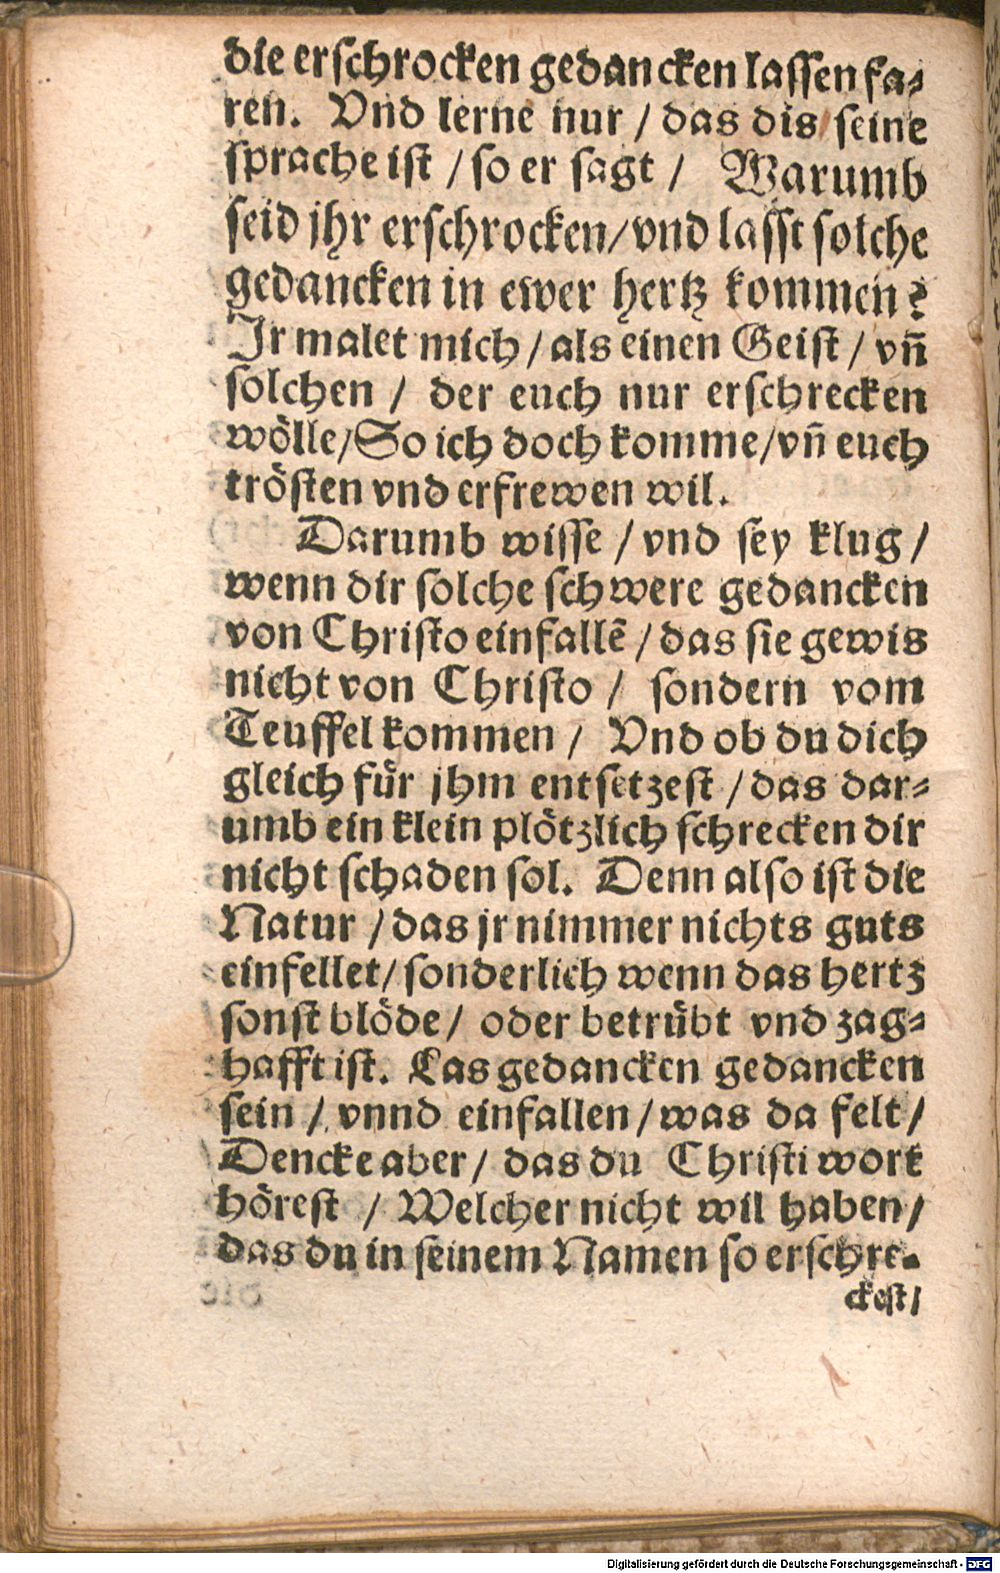 die erschrocken gedancken lassen fa⸗
ren. Vnd lerne nur / das dis seine
sprache ist / so er sagt / Warumb
seid jhr erschrocken/vnd lasst solche
gedancken in ewer hertz kommen?
Jr malet mich / als einen Geist / vn̄
solchen / der euch nur erschrecken
wölle/So ich doch komme/vn̄ euch
trösten vnd erfrewen wil.
Darumb wisse / vnd sey klug /
wenn dir solche schwere gedancken
von Christo einfallē / das sie gewis
nicht von Christo / sondern vom
Teuffel kommen / Vnd ob du dich
gleich für jhm entsetzest / das dar⸗
umb ein klein plötzlich schrecken dir
nicht schaden sol. Denn also ist die
Natur / das jr nimmer nichts guts
einfellet/ sonderlich wenn das hertz
sonst blöde/ oder betrübt vnd zag⸗
hafft ist. Las gedancken gedancken
sein / vnnd einfallen / was da felt /
Dencke aber/ das du Christi wort
hörest / Welcher nicht wil haben/
das du in seinem Namen so erschre⸗
ckest/
Digitalisierung gefördert durch die Deutsche Forschungsgemeinschaft - DFG